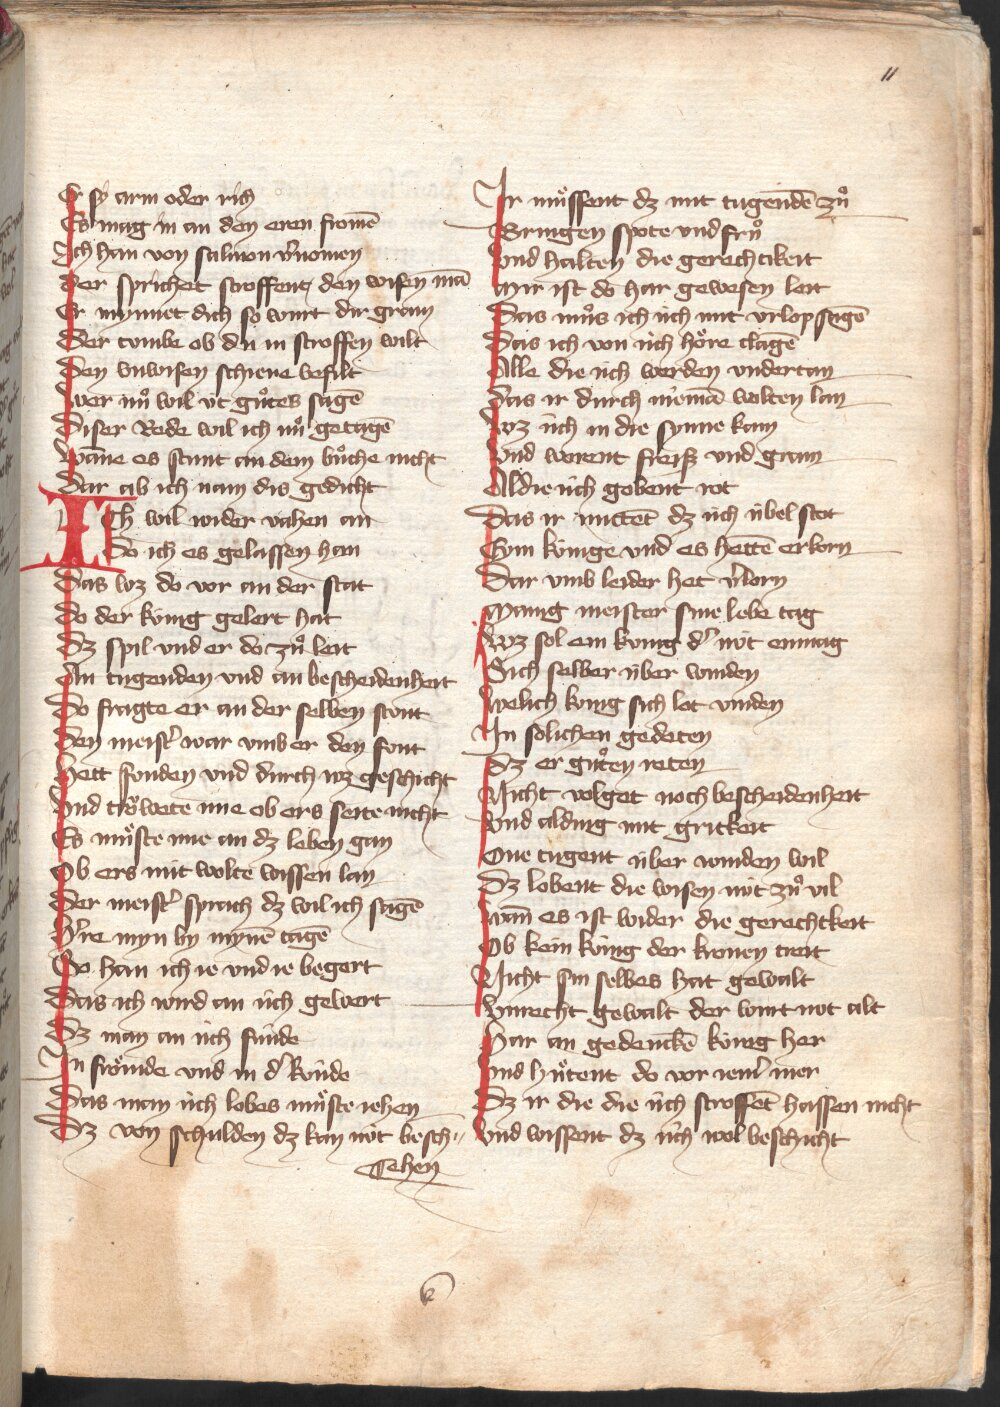 11
Er sÿ arm oder rich
Es mag im an den eren fromē
Ich han von salmon v̓nomen
Der sprichet stroffent den wisen mā
Er mynnet dich so wurt dir gram
Der tumbe ob du in stroffen wilt
Den vnwisen schiere befilt
Wer nuͦ wil vt guͦtes sagē
Diser Rede wil ich nuͦ getagē
Wāne es stunt an dem buͦche nicht
Dar ab ich nam dis gedicht
ICh wil wider vahen an
Do ich es gelassen han
Das wz do vor an der stat
Do der künig gelert hat
Dz spil vnd er do zuͦ leit
An tugenden vnd an bescheidenheit
Do fragte er an der selben stunt
Den meist̓ war vmb er den funt
Hett funden vnd durch wz geschicht
Vnd troͤwete ime ob ers seite nicht
Es muͤste ime an dz leben gan
Ob ers nüt wolte wissen lan
Der meist̓ sprach dz wil ich sagē
H̓re myn by mynē tagē
So han ich ie vnd ie begert
Das ich wird an üch gewert
Dz man an üch funde
In froͤmde vnd in d̓ künde
Das man üch lobes muͤste iehen
Dz von schulden dz kan nüt besch
ehen
Ir muͤssent dz mit tugendē zuͦ
Bringen spote vnd fruͦ
Vnd halten die gerechtikeit
Mir ist do har gewesen leit
Das muͦs ich üch mit vrlop sagē
Das ich von üch hoͤre clagē
Alle die üch werden vndertan
Das ir durch niemā wolten lan
Wz üch in die synne kam
Vnd worent freiß vnd gram
Al die üch gobent rot
Das ir mittēt dz üch übel stot
Eym künige vnd es hettē erkorn
Dar vmb leider het v̓lorn
Manig meister sine lebe tag
Wz sol ein künig d̓ nüt enmag
Sich selber über winden
Welich künig sich lot vinden
In solichen gedeten
Dz er guͦten reten
Nicht volget noch bescheidenheit
Vnd alding mit gritkeit
One tugent über winden wil
Dz lobent die wisen nüt zuͦ vil
Wañ es ist wider die gerechtkeit
Ob kein künig der kronen treit
Nicht sin selbes hat gewalt
Vnrecht gewalt der wurt not alt
Har an gedenckē künig her
Vnd huͤtent do vor iem̓ mer
Dz ir die die üch stroffēt hassen nicht
Vnd wissent dz üch wol beschicht